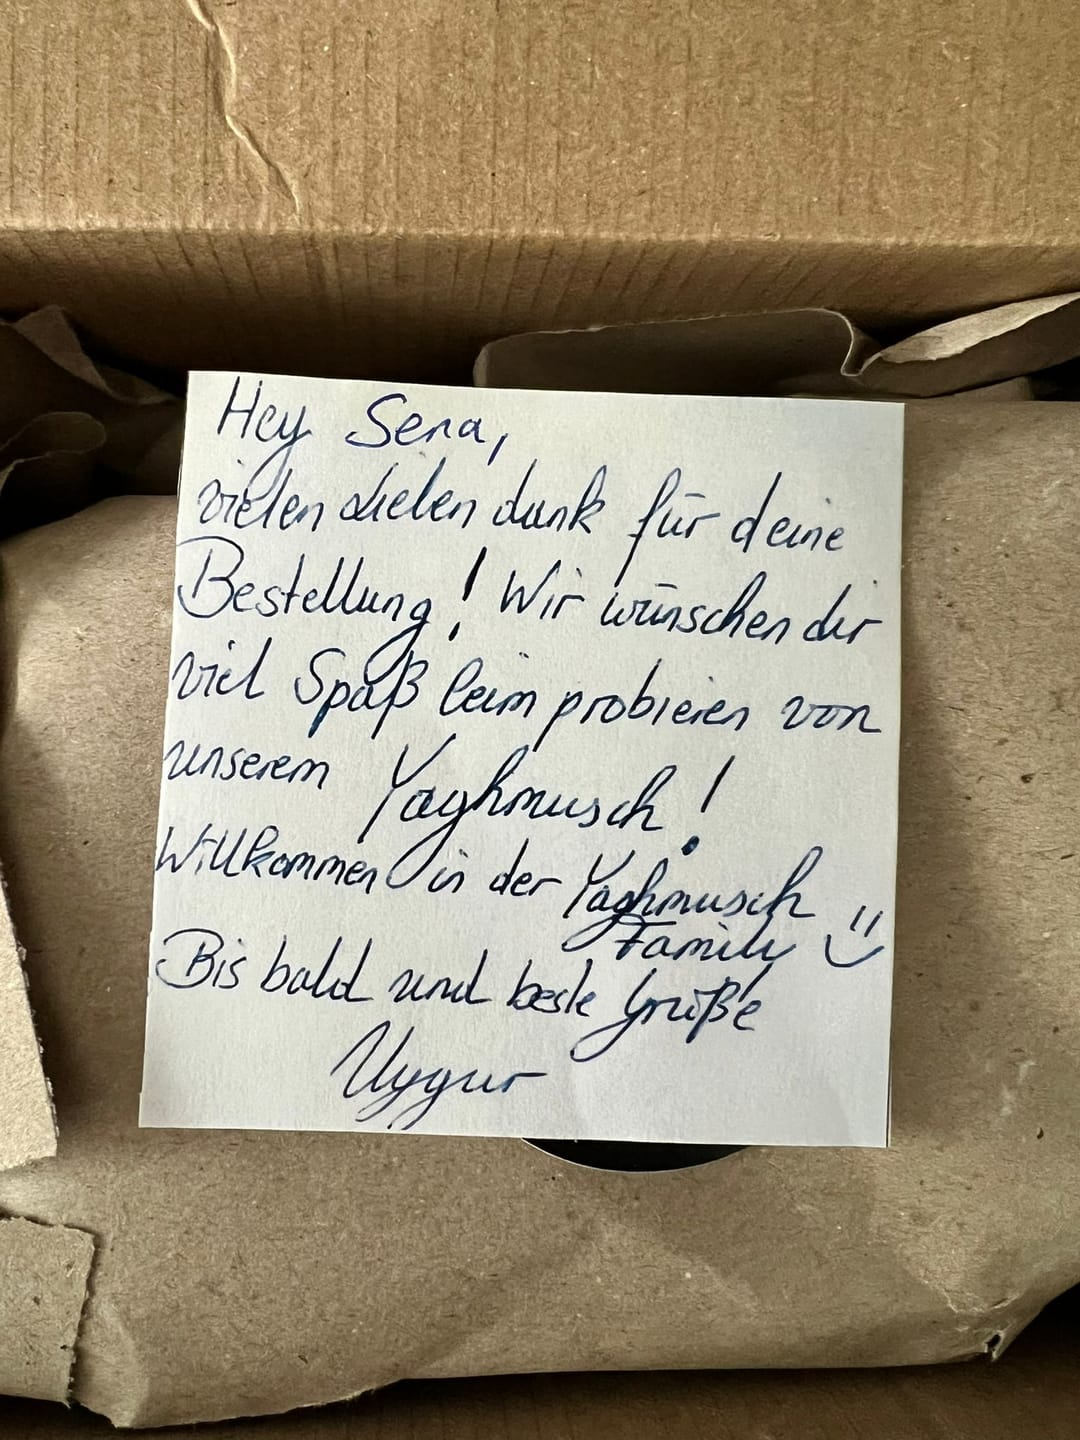 Hey Sena,
vielen vielen dank für deine
Bestellung! Wir wünschen dir
viel Spaß beim probieren von
unserem Yaghmusch!
Willkommen in der Yaghmusch
Family
Bis bald und beste Grüße
Uygur